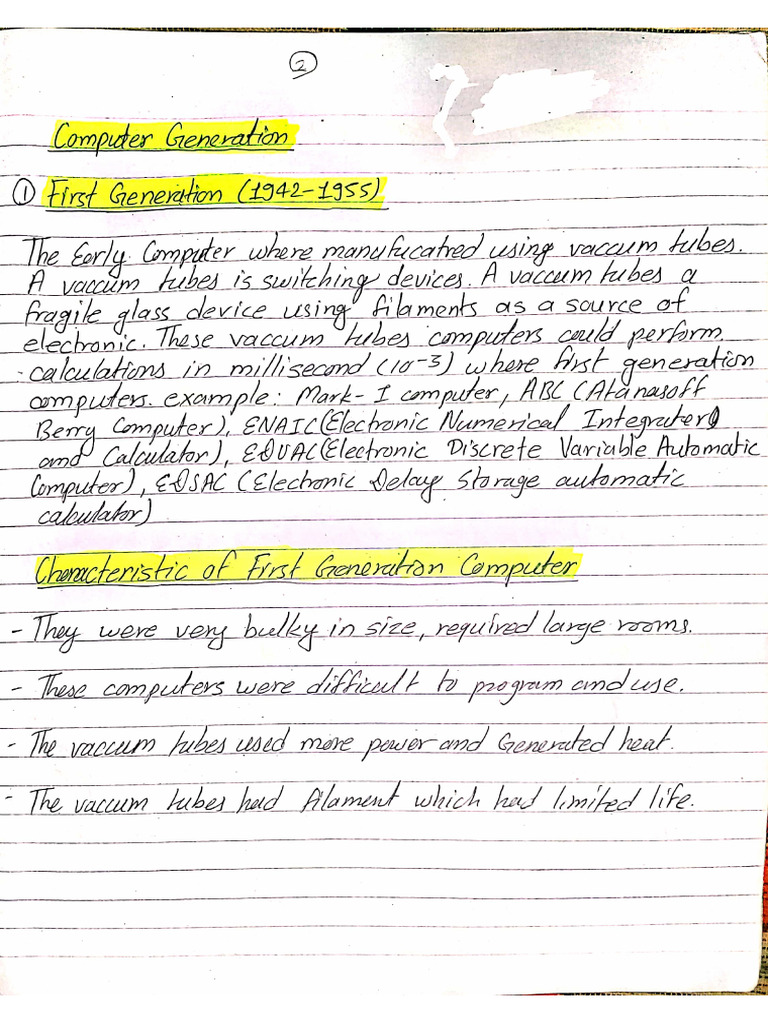 2
Computer Generation
① First Generation (1942-1955)
The Early Computer where manufucatred using vaccum tubes.
A vaccum tubes is switching devices. A vaccum tubes a
fragile glass device using filaments as a source of
electronic. These vaccum tubes computers could perform
calculations in millisecond (10-3) where first generation
computers. example: Mark-I computer, ABC (Atanasoff
Berry Computer), ENAIC (Electronic Numerical Integrater
and Calculator), EDVAC (Electronic Discrete Variable Automatic
Computer), EDSAC (Electronic Delay Storage automatic
calculator)
Characteristic of First Generation Computer
- They were very bulky in size, required large rooms.
- These computers were difficult to program and use.
- The vaccum tubes used more power and Generated heat.
- The vaccum tubes had filament which had limited life.